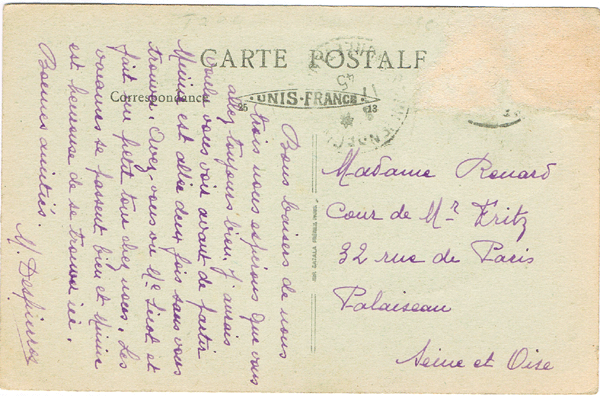 CARTE POSTALE
Correspondance
25 UNIS-FRANCE 13
Bons baisers de nous
trois nous espérons que vous
allez toujours bien. J'aurais
voulu vous voir avant de partir
Mimie est allée deux fois sans vous
trouver. Avez-vous vu Me et
fait un petit tour chez nous. Les
vacances se passent bien et Mimie
est heureuse de se trouver ici.
Bonnes amitiés.
M.
Madame Renard
Cour de Mr Fritz
32 rue de Paris
Palaiseau
Seine et Oise